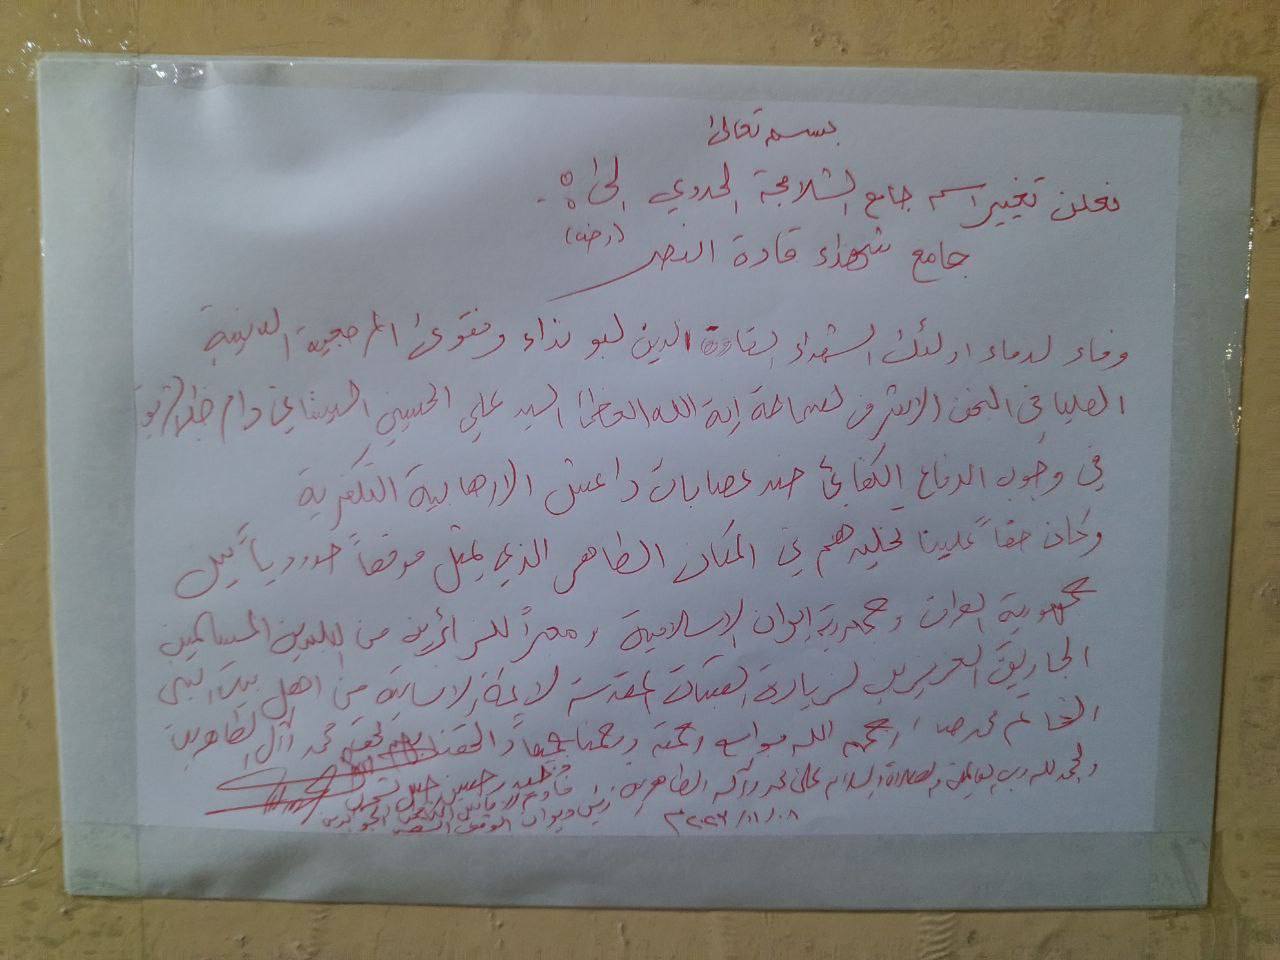 بسمه تعالى
نعلن تغيير اسم جامع الشلامجة الحدودي الى :-
جامع شهداء قادة النصر (رض)
وفاء لدماء اولئك الشهداء القادة الذين لبو نداء وفتوى المرجعية الدينية
العليا في النجف الاشرف لسماحة اية الله العظمى السيد علي الحسيني السيستاني دام ظله
في وجوب الدفاع الكفائي ضد عصابات داعش الارهابية التكفيرية
وكان حقاً علينا تخليدهم في المكان الطاهر الذي يمثل موقعاً حدودياً بين
جمهورية العراق وجمهورية ايران الاسلامية ومعبراً للزائرين من البلدين المسلمين
الجاريين العزيزين لزيارة العتبات المقدسة لائمة الانسانية من اهل بيت النبي
الخاتم محمد ص رحمهم الله بواسع رحمته ورحمنا جميعاً والحقنا بهم بحق محمد وآل الطاهرين
والحمد لله رب العالمين والصلاة والسلام على محمد وآله الطاهرين
خادم الاماميين الكاظمين الجوادين
رئيس ديوان الوقف الشيعي